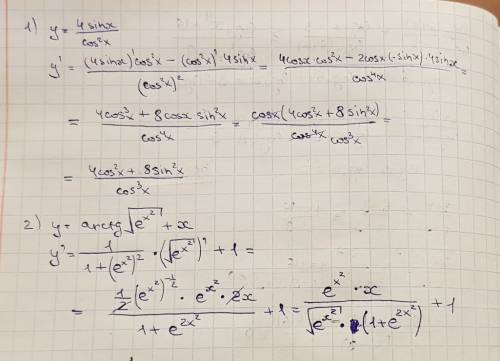 1) y = 4 sinx / cos²x
y' = ((4 sinx)' cos²x − (cos²x)' · 4 sinx) / (cos²x)² = (4 cosx · cos²x − 2cosx · (−sinx) · 4 sinx) / cos⁴x =
= (4cos³x + 8cosx sin²x) / cos⁴x = cosx(4cos²x + 8 sin²x) / cos⁴x cos³x =
= (4cos²x + 8 sin²x) / cos³x
2) y = arctg √(e^(x²)) + x
y' = 1 / (1 + (e^(x²))²) · (√(e^(x²)))' + 1 =
= (1/2 (e^(x²))^(−1/2) · e^(x²) · 2x) / (1 + e^(2x²)) + 1 = (e^(x²) · x) / (√(e^(x²)) · (1 + e^(2x²))) + 1